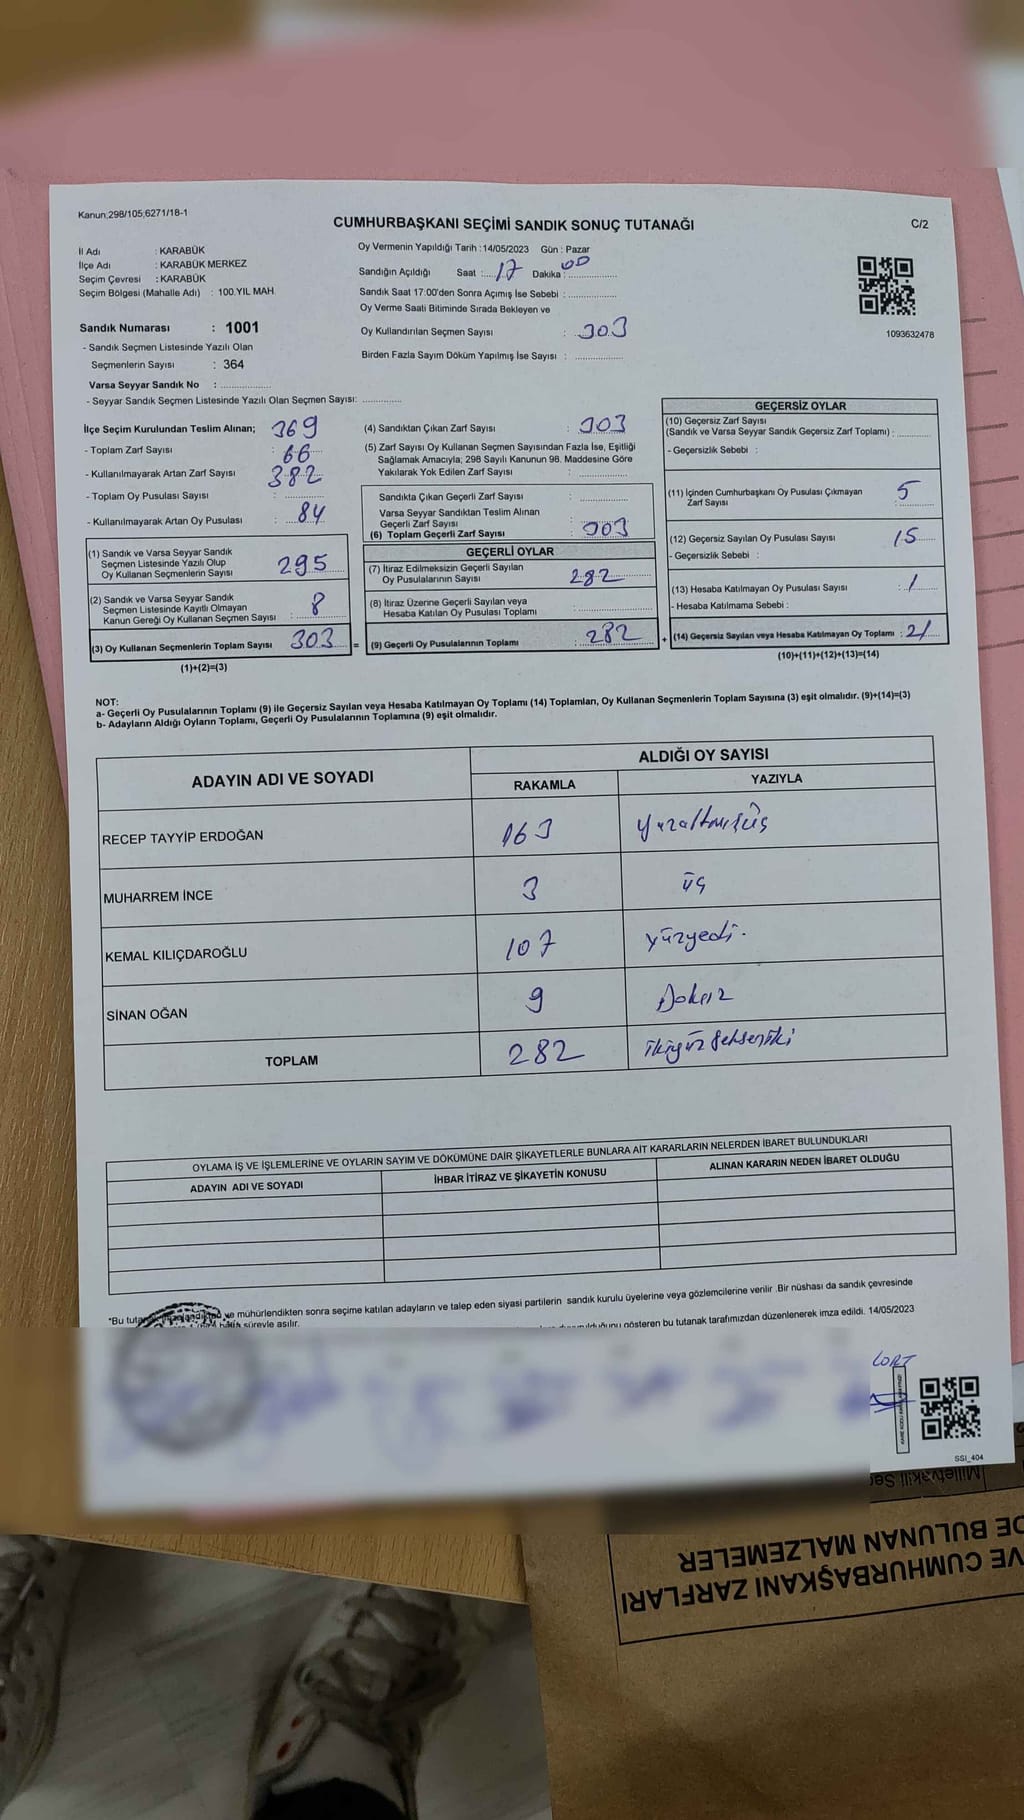 Kanun,298/105,6271/18-1
CUMHURBAŞKANI SEÇİMİ SANDIK SONUÇ TUTANAĞI
C/2
İl Adı : KARABÜK
İlçe Adı : KARABÜK MERKEZ
Seçim Çevresi : KARABÜK
Seçim Bölgesi (Mahalle Adı) : 100.YIL MAH.
Sandık Numarası : 1001
- Sandık Seçmen Listesinde Yazılı Olan
Seçmenlerin Sayısı : 364
Varsa Seyyar Sandık No : ..................
- Seyyar Sandık Seçmen Listesinde Yazılı Olan Seçmen Sayısı: ..............
Oy Vermenin Yapıldığı Tarih : 14/05/2023 Gün : Pazar
Sandığın Açıldığı Saat : 17 Dakika : 00
Sandık Saat 17:00'den Sonra Açımış İse Sebebi : ................
Oy Verme Saati Bitiminde Sırada Bekleyen ve
Oy Kullandırılan Seçmen Sayısı : 303
Birden Fazla Sayım Döküm Yapılmış İse Sayısı : ................
1093632478
İlçe Seçim Kurulundan Teslim Alınan; 369
- Toplam Zarf Sayısı : 66
- Kullanılmayarak Artan Zarf Sayısı 382
- Toplam Oy Pusulası Sayısı : ..............
- Kullanılmayarak Artan Oy Pusulası : 84
(1) Sandık ve Varsa Seyyar Sandık
Seçmen Listesinde Yazılı Olup
Oy Kullanan Seçmenlerin Sayısı 295
(2) Sandık ve Varsa Seyyar Sandık
Seçmen Listesinde Kayıtlı Olmayan
Kanun Gereği Oy Kullanan Seçmen Sayısı : 8
(3) Oy Kullanan Seçmenlerin Toplam Sayısı 303 =
(1)+(2)=(3)
(4) Sandıktan Çıkan Zarf Sayısı : 303
(5) Zarf Sayısı Oy Kullanan Seçmen Sayısından Fazla İse, Eşitliği
Sağlamak Amacıyla; 298 Sayılı Kanunun 98. Maddesine Göre
Yakılarak Yok Edilen Zarf Sayısı : ................
Sandıkta Çıkan Geçerli Zarf Sayısı : ................
Varsa Seyyar Sandıktan Teslim Alınan
Geçerli Zarf Sayısı : ................
(6) Toplam Geçerli Zarf Sayısı : 303
GEÇERLİ OYLAR
(7) İtiraz Edilmeksizin Geçerli Sayılan
Oy Pusulalarının Sayısı 282
(8) İtiraz Üzerine Geçerli Sayılan veya
Hesaba Katılan Oy Pusulası Toplamı : ................
(9) Geçerli Oy Pusulalarının Toplamı : 282 +
GEÇERSİZ OYLAR
(10) Geçersiz Zarf Sayısı
(Sandık ve Varsa Seyyar Sandık Geçersiz Zarf Toplamı) : ..........
- Geçersizlik Sebebi :
(11) İçinden Cumhurbaşkanı Oy Pusulası Çıkmayan
Zarf Sayısı : 5
(12) Geçersiz Sayılan Oy Pusulası Sayısı 15
- Geçersizlik Sebebi :
(13) Hesaba Katılmayan Oy Pusulası Sayısı : 1
- Hesaba Katılmama Sebebi :
(14) Geçersiz Sayılan veya Hesaba Katılmayan Oy Toplamı : 21
(10)+(11)+(12)+(13)=(14)
NOT:
a- Geçerli Oy Pusulalarının Toplamı (9) ile Geçersiz Sayılan veya Hesaba Katılmayan Oy Toplamı (14) Toplamları, Oy Kullanan Seçmenlerin Toplam Sayısına (3) eşit olmalıdır. (9)+(14)=(3)
b- Adayların Aldığı Oyların Toplamı, Geçerli Oy Pusulalarının Toplamına (9) eşit olmalıdır.
ADAYIN ADI VE SOYADI
ALDIĞI OY SAYISI
RAKAMLA YAZIYLA
RECEP TAYYİP ERDOĞAN 163 Yüzaltmışüç
MUHARREM İNCE 3 üç
KEMAL KILIÇDAROĞLU 107 yüzyedi.
SİNAN OĞAN 9 Dokuz
TOPLAM 282 ikiyüz Seksen iki
OYLAMA İŞ VE İŞLEMLERİNE VE OYLARIN SAYIM VE DÖKÜMÜNE DAİR ŞİKAYETLERLE BUNLARA AİT KARARLARIN NELERDEN İBARET BULUNDUKLARI
ADAYIN ADI VE SOYADI İHBAR İTİRAZ VE ŞİKAYETİN KONUSU ALINAN KARARIN NEDEN İBARET OLDUĞU
*Bu ve mühürlendikten sonra seçime katılan adayların ve talep eden siyasi partilerin sandık kurulu üyelerine veya gözlemcilerine verilir .Bir nüshası da sandık çevresinde
süreyle asılır.
gösteren bu tutanak tarafımızdan düzenlenerek imza edildi. 14/05/2023
SSI_404
Milletvekili
DE BULUNAN MALZEMELER
VE CUMHURBAŞKANI ZARFLARI